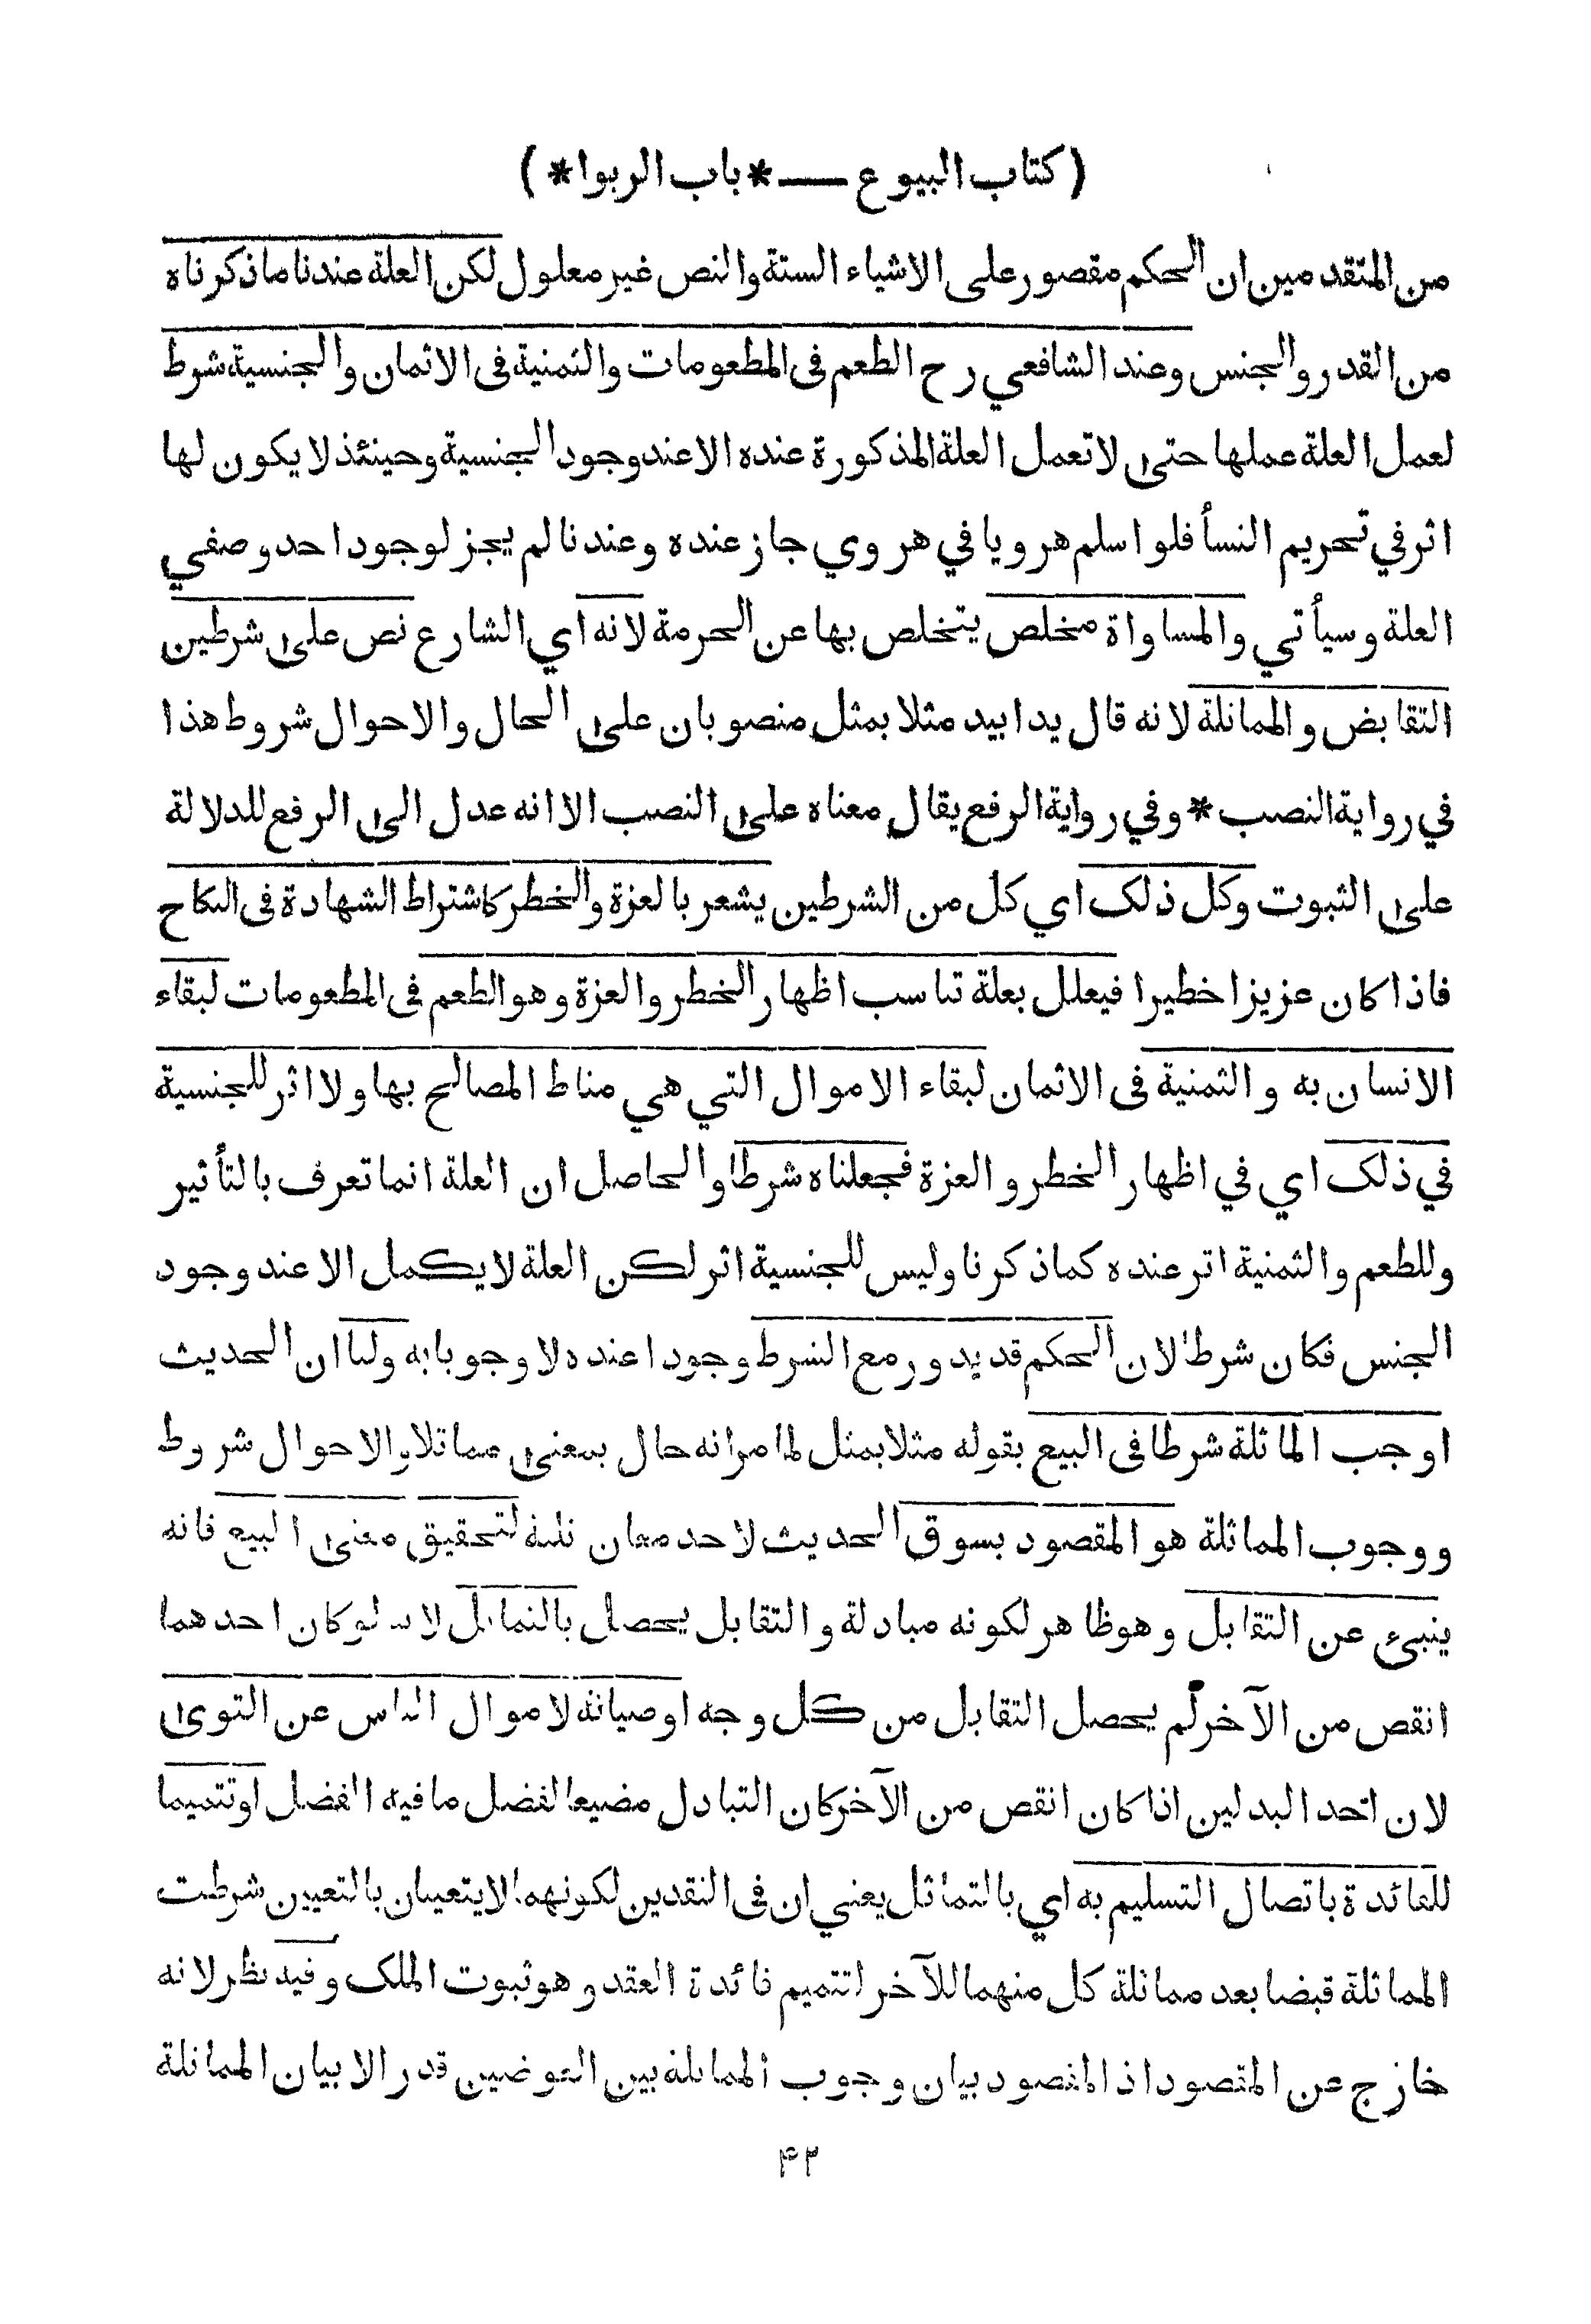 ( كتاب البيوع — * باب الربوا * )
من المتقدمين ان الحكم مقصور على الاشياء الستة والنص غير معلول لكن العلة عندنا ما ذكرناه
من القدر والجنس وعند الشافعي رح الطعم فى المطعومات والثمنية فى الاثمان والجنسية شرط
لعمل العلة عملها حتى لا تعمل العلة المذكورة عنده الا عند وجود الجنسية وحينئذ لا يكون لها
اثر في تحريم النسأ فلو اسلم هرويا في هروي جاز عنده وعندنا لم يجز لوجود احد وصفي
العلة وسيأتي والمساواة مخلص يتخلص بها عن الحرمة لانه اي الشارع نص على شرطين
التقابض والمماثلة لانه قال يدا بيد مثلا بمثل منصوبان على الحال والاحوال شروط هذا
في رواية النصب * وفي رواية الرفع يقال معناه على النصب الا انه عدل الى الرفع للدلالة
على الثبوت وكل ذلك اي كل من الشرطين يشعر بالعزة والخطر كاشتراط الشهادة فى النكاح
فاذا كان عزيزا خطيرا فيعلل بعلة تناسب اظهار الخطر والعزة وهو الطعم فى المطعومات لبقاء
الانسان به والثمنية فى الاثمان لبقاء الاموال التي هي مناط المصالح بها ولا اثر للجنسية
في ذلك اي في اظهار الخطر والعزة فجعلناه شرطا والحاصل ان العلة انما تعرف بالتأثير
وللطعم والثمنية اثر عنده كما ذكرنا وليس للجنسية اثر لكن العلة لا يكمل الا عند وجود
الجنس فكان شرطا لان الحكم قد يدور مع الشرط وجودا عنده لا وجوبا به ولنا ان الحديث
اوجب المماثلة شرطا فى البيع بقوله مثلا بمثل لما مر انه حال بمعنى مماثلا والاحوال شروط
ووجوب المماثلة هو المقصود بسوق الحديث لاحد معان ثلثة لتحقيق معنى البيع فانه
ينبئ عن التقابل وهو ظاهر لكونه مبادلة والتقابل يحصل بالتماثل لانه لو كان احدهما
انقص من الآخر لم يحصل التقابل من كل وجه او صيانة لاموال الناس عن التوى
لان احد البدلين اذا كان انقص من الآخر كان التبادل مضيعا لفضل ما فيه الفضل او تتميما
للفائدة باتصال التسليم به اي بالتماثل يعني ان فى النقدين لكونهما لا يتعينان بالتعيين شرطت
المماثلة قبضا بعد مماثلة كل منهما للآخر لتتميم فائدة العقد وهو ثبوت الملك وفيه نظر لانه
خارج عن المقصود اذ المقصود بيان وجوب المماثلة بين العوضين قدرا لا بيان المماثلة
۴۲